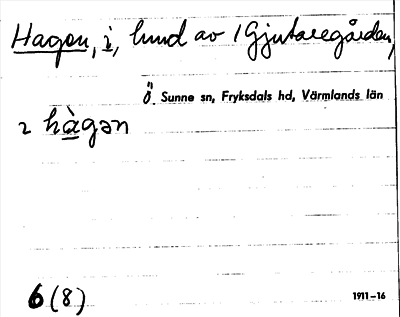 Hagen, i, lund av / Gjutaregården,
Ö. Sunne sn, Fryksdals hd, Värmlands län
2 hàgən
6 (8) 1911–16